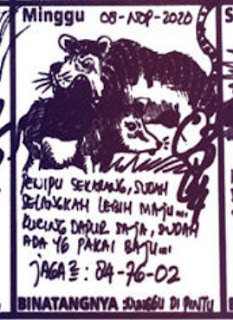 Minggu 08-NOP-2020
PENIPU SEKARANG, SUDAH
SELANGKAH LEBIH MAJU...
KUCING DAPUR SAJA, SUDAH
ADA YG PAKAI BAJU...
JAGA2: 84-76-02
BINATANGNYA DITUNGGU DI PINTU